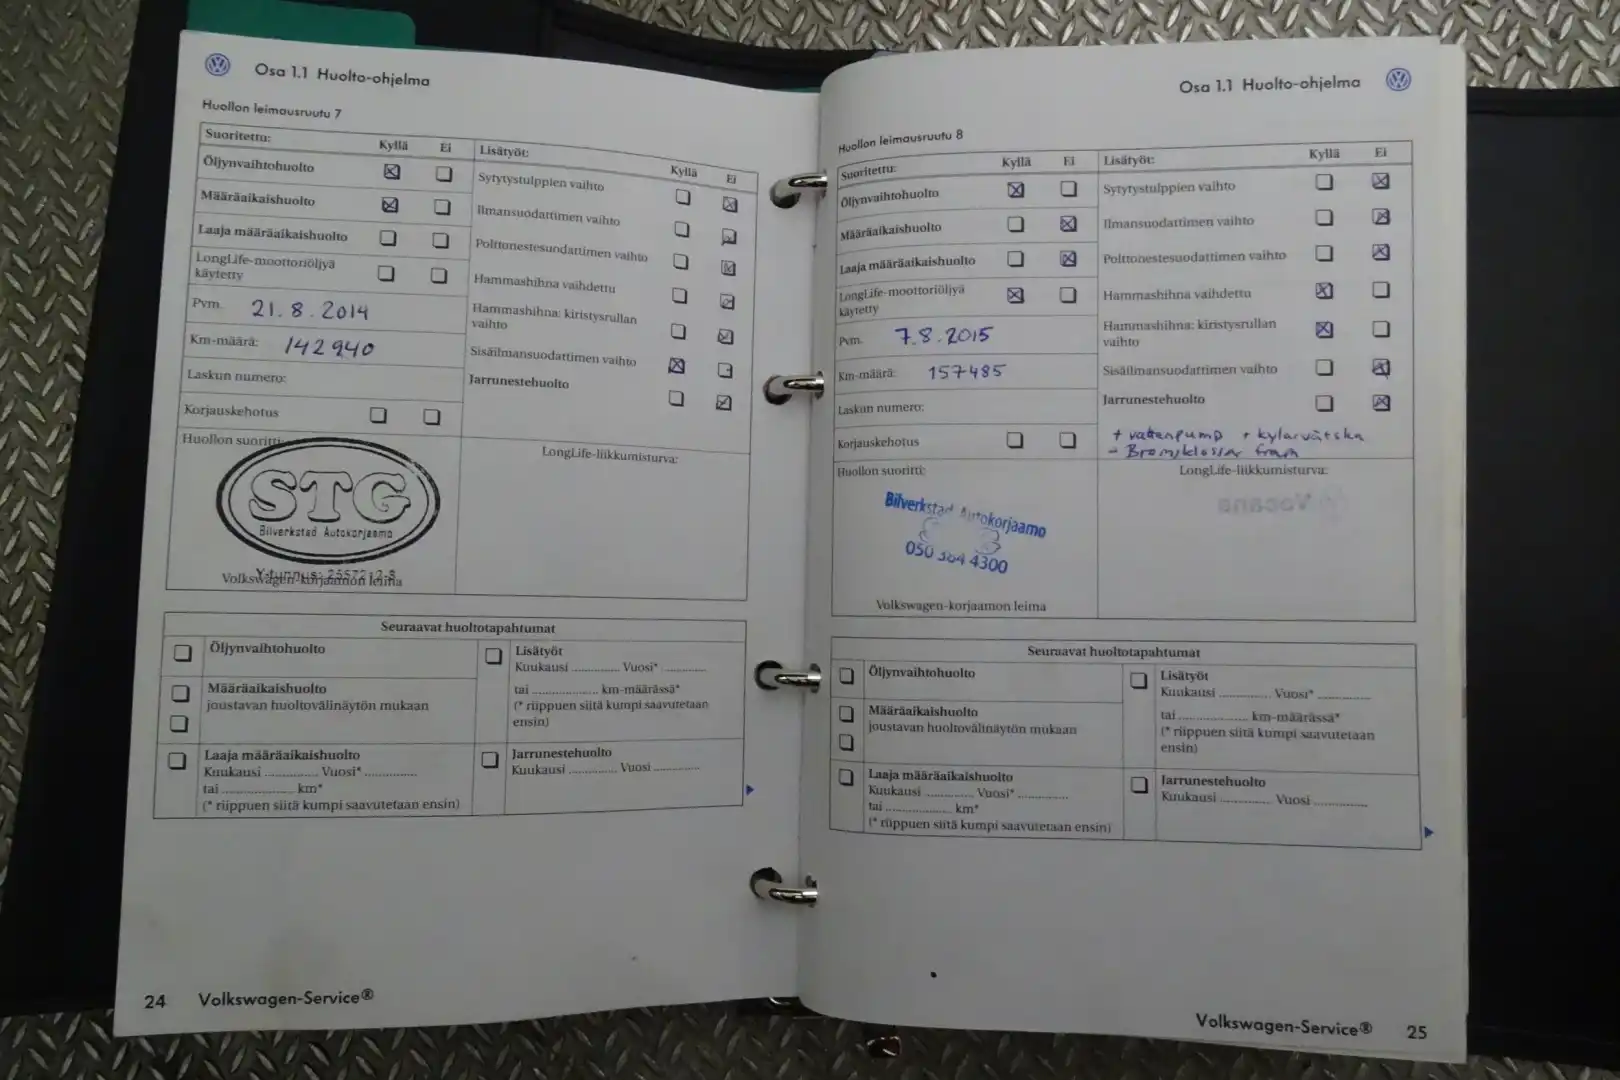 Osa 1.1 Huolto-ohjelma
Huollon leimausruutu 7
Suoritettu: Kyllä Ei
Öljynvaihtohuolto
Määräaikaishuolto
Laaja määräaikaishuolto
LongLife-moottoriöljyä
käytetty
Pvm. 21.8.2014
Km-määrä: 142940
Laskun numero:
Korjauskehotus
Huollon suoritti:
STG
Bilverkstad Autokorjaamo
Volkswagen-korjaamon leima
Lisätyöt: Kyllä Ei
Sytytystulppien vaihto
Ilmansuodattimen vaihto
Polttonestesuodattimen vaihto
Hammashihna vaihdettu
Hammashihna: kiristysrullan
vaihto
Sisäilmansuodattimen vaihto
Jarrunestehuolto
LongLife-liikkumisturva:
Seuraavat huoltotapahtumat
Öljynvaihtohuolto
Määräaikaishuolto
joustavan huoltovälinäytön mukaan
Laaja määräaikaishuolto
Kuukausi .............. Vuosi* ..............
tai .................... km*
(* riippuen siitä kumpi saavutetaan ensin)
Lisätyöt
Kuukausi ............. Vuosi* ...........
tai .................... km-määrässä*
(* riippuen siitä kumpi saavutetaan
ensin)
Jarrunestehuolto
Kuukausi ............. Vuosi .............
24 Volkswagen-Service®
Osa 1.1 Huolto-ohjelma
Huollon leimausruutu 8
Suoritettu: Kyllä Ei
Öljynvaihtohuolto
Määräaikaishuolto
Laaja määräaikaishuolto
LongLife-moottoriöljyä
käytetty
Pvm. 7.8.2015
Km-määrä: 157485
Laskun numero:
Korjauskehotus
Huollon suoritti:
Bilverkstad Autokorjaamo
050 364 4300
Volkswagen-korjaamon leima
Lisätyöt: Kyllä Ei
Sytytystulppien vaihto
Ilmansuodattimen vaihto
Polttonestesuodattimen vaihto
Hammashihna vaihdettu
Hammashihna: kiristysrullan
vaihto
Sisäilmansuodattimen vaihto
Jarrunestehuolto
+ vattenpump + kylarvätska
- Bromsklossar fram
LongLife-liikkumisturva:
Seuraavat huoltotapahtumat
Öljynvaihtohuolto
Määräaikaishuolto
joustavan huoltovälinäytön mukaan
Laaja määräaikaishuolto
Kuukausi ............. Vuosi* .............
tai .................... km*
(* riippuen siitä kumpi saavutetaan ensin)
Lisätyöt
Kuukausi ............. Vuosi* .............
tai .................. km-määrässä*
(* riippuen siitä kumpi saavutetaan
ensin)
Jarrunestehuolto
Kuukausi ............. Vuosi .............
Volkswagen-Service® 25